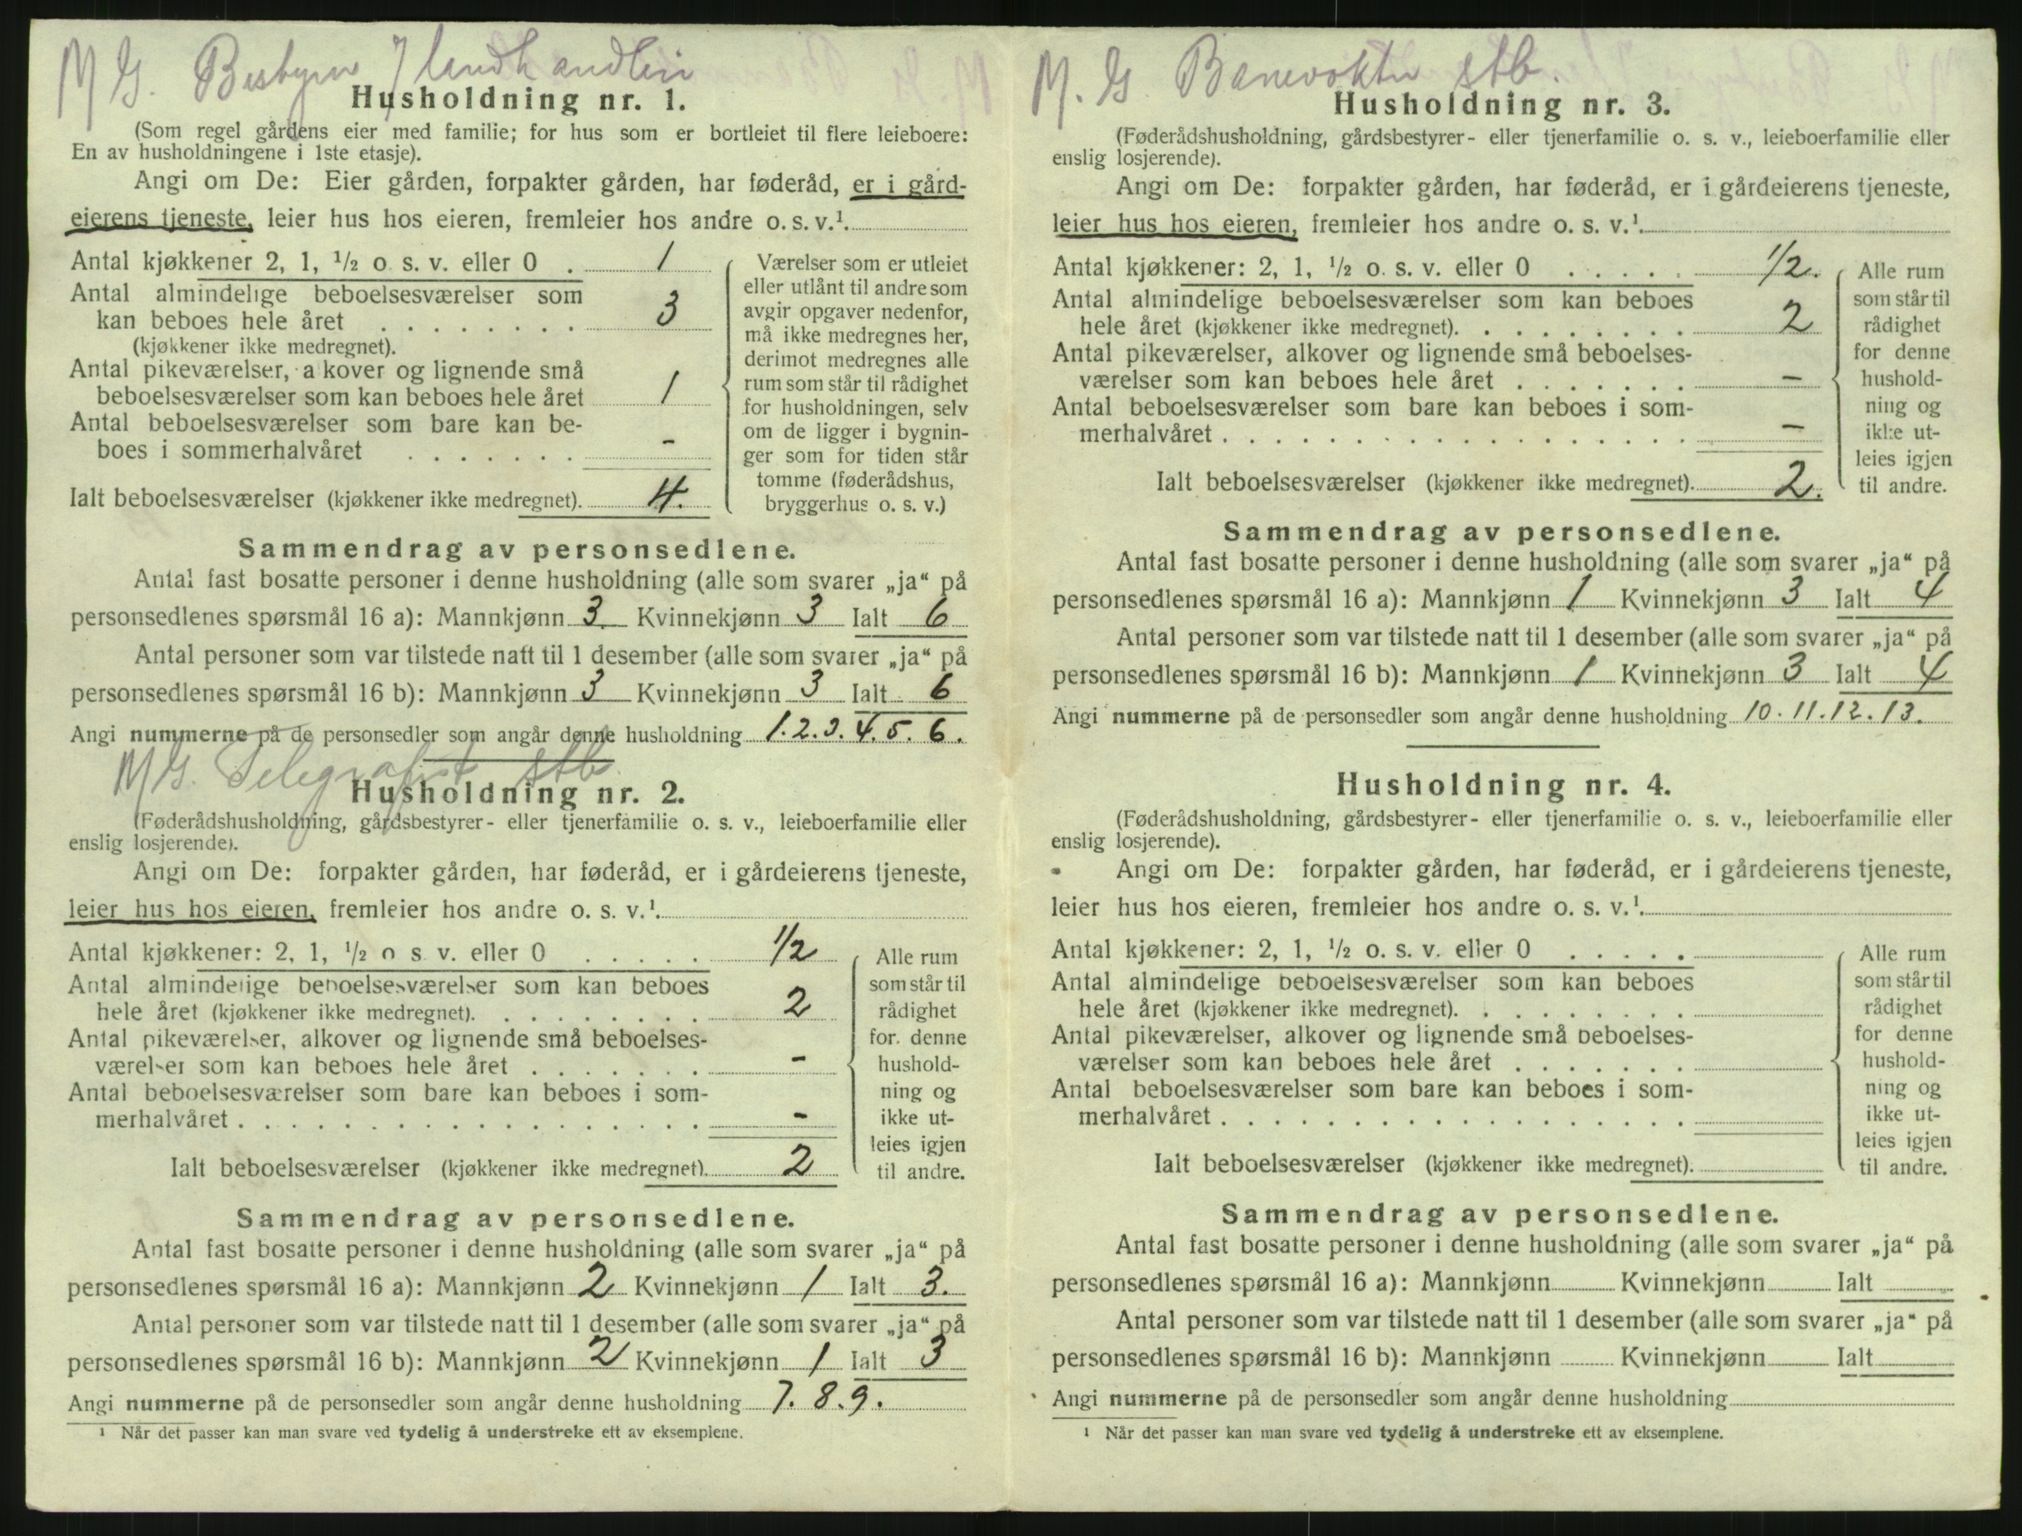 M G. Bestyrer / landhandleri
Husholdning nr. 1.
(Som regel gårdens eier med familie; for hus som er bortleiet til flere leieboere:
En av husholdningene i 1ste etasje).
Angi om De: Eier gården, forpakter gården, har føderåd, er i gård-
eierens tjeneste, leier hus hos eieren, fremleier hos andre o. s. v.¹
Antal kjøkkener 2, 1, ½ o. s. v. eller 0 . 1
Antal almindelige beboelsesværelser som
kan beboes hele året . . . . . . . . 3
(kjøkkener ikke medregnet).
Antal pikeværelser, a kover og lignende små
beboelsesværelser som kan beboes hele året 1
Antal beboelsesværelser som bare kan be-
boes i sommerhalvåret . . . . . . . -
Ialt beboelsesværelser (kjøkkener ikke medregnet). 4.
Værelser som er utleiet
eller utlånt til andre som
avgir opgaver nedenfor,
må ikke medregnes her,
derimot medregnes alle
rum som står til rådighet
for husholdningen, selv
om de ligger i bygnin-
ger som for tiden står
tomme (føderådshus,
bryggerhus o. s. v.)
Sammendrag av personsedlene.
Antal fast bosatte personer i denne husholdning (alle som svarer „ja“ på
personsedlenes spørsmål 16 a): Mannkjønn 3 Kvinnekjønn 3 Ialt 6
Antal personer som var tilstede natt til 1 desember (alle som svarer „ja“ på
personsedlenes spørsmål 16 b): Mannkjønn 3 Kvinnekjønn 3 Ialt 6
Angi nummerne på de personsedler som angår denne husholdning 1. 2. 3. 4. 5. 6.
M G. Telegrafist stb
Husholdning nr. 2.
(Føderådshusholdning, gårdsbestyrer- eller tjenerfamilie o. s. v., leieboerfamilie eller
enslig losjerende).
Angi om De: forpakter gården, har føderåd, er i gårdeierens tjeneste,
leier hus hos eieren, fremleier hos andre o. s. v.¹
Antal kjøkkener: 2, 1, ½ o. s. v. eller 0 . . . . . 1/2
Antal almindelige beboelsesværelser som kan beboes
hele året (kjøkkener ikke medregnet). . . . . . . . . 2
Antal pikeværelser, alkover og lignende små beboelses-
værelser som kan beboes hele året . . . . . . . -
Antal beboelsesværelser som bare kan beboes i som-
merhalvåret . . . . . . . . . . . . . . . . . -
Ialt beboelsesværelser (kjøkkener ikke medregnet). 2
Alle rum
som står til
rådighet
for denne
hushold-
ning og
ikke ut-
leies igjen
til andre.
Sammendrag av personsedlene.
Antal fast bosatte personer i denne husholdning (alle som svarer „ja“ på
personsedlenes spørsmål 16 a): Mannkjønn 2 Kvinnekjønn 1 Ialt 3.
Antal personer som var tilstede natt til 1 desember (alle som svarer „ja“ på
personsedlenes spørsmål 16 b): Mannkjønn 2 Kvinnekjønn 1 Ialt 3
Angi nummerne på de personsedler som angår denne husholdning 7. 8. 9.
¹ Når det passer kan man svare ved tydelig å understreke ett av eksemplene.
M. G. Banevokter stb.
Husholdning nr. 3.
(Føderådshusholdning, gårdsbestyrer- eller tjenerfamilie o. s. v., leieboerfamilie eller
enslig losjerende).
Angi om De: forpakter gården, har føderåd, er i gårdeierens tjeneste,
leier hus hos eieren, fremleier hos andre o. s. v.¹
Antal kjøkkener: 2, 1, ½ o. s. v. eller 0 . . . . . 1/2.
Antal almindelige beboelsesværelser som kan beboes
hele året (kjøkkener ikke medregnet). . . . . . . . . 2
Antal pikeværelser, alkover og lignende små beboelses-
værelser som kan beboes hele året . . . . . . . -
Antal beboelsesværelser som bare kan beboes i som-
merhalvåret . . . . . . . . . . . . . . . . . -
Ialt beboelsesværelser (kjøkkener ikke medregnet). 2.
Alle rum
som står til
rådighet
for denne
hushold-
ning og
ikke ut-
leies igjen
til andre.
Sammendrag av personsedlene.
Antal fast bosatte personer i denne husholdning (alle som svarer „ja“ på
personsedlenes spørsmål 16 a): Mannkjønn 1 Kvinnekjønn 3 Ialt 4
Antal personer som var tilstede natt til 1 desember (alle som svarer „ja“ på
personsedlenes spørsmål 16 b): Mannkjønn 1 Kvinnekjønn 3 Ialt 4
Angi nummerne på de personsedler som angår denne husholdning 10. 11. 12. 13.
Husholdning nr. 4.
(Føderådshusholdning, gårdsbestyrer- eller tjenerfamilie o. s. v., leieboerfamilie eller
enslig losjerende).
Angi om De: forpakter gården, har føderåd, er i gårdeierens tjeneste,
leier hus hos eieren, fremleier hos andre o. s. v.¹
Antal kjøkkener: 2, 1, ½ o. s. v. eller 0 . . . . .
Antal almindelige beboelsesværelser som kan beboes
hele året (kjøkkener ikke medregnet). . . . . . . . .
Antal pikeværelser, alkover og lignende små beboelses-
værelser som kan beboes hele året . . . . . . .
Antal beboelsesværelser som bare kan beboes i som-
merhalvåret . . . . . . . . . . . . . . . . .
Ialt beboelsesværelser (kjøkkener ikke medregnet).
Alle rum
som står til
rådighet
for denne
hushold-
ning og
ikke ut-
leies igjen
til andre.
Sammendrag av personsedlene.
Antal fast bosatte personer i denne husholdning (alle som svarer „ja“ på
personsedlenes spørsmål 16 a): Mannkjønn Kvinnekjønn Ialt
Antal personer som var tilstede natt til 1 desember (alle som svarer „ja“ på
personsedlenes spørsmål 16 b): Mannkjønn Kvinnekjønn Ialt
Angi nummerne på de personsedler som angår denne husholdning
¹ Når det passer kan man svare ved tydelig å understreke ett av eksemplene.